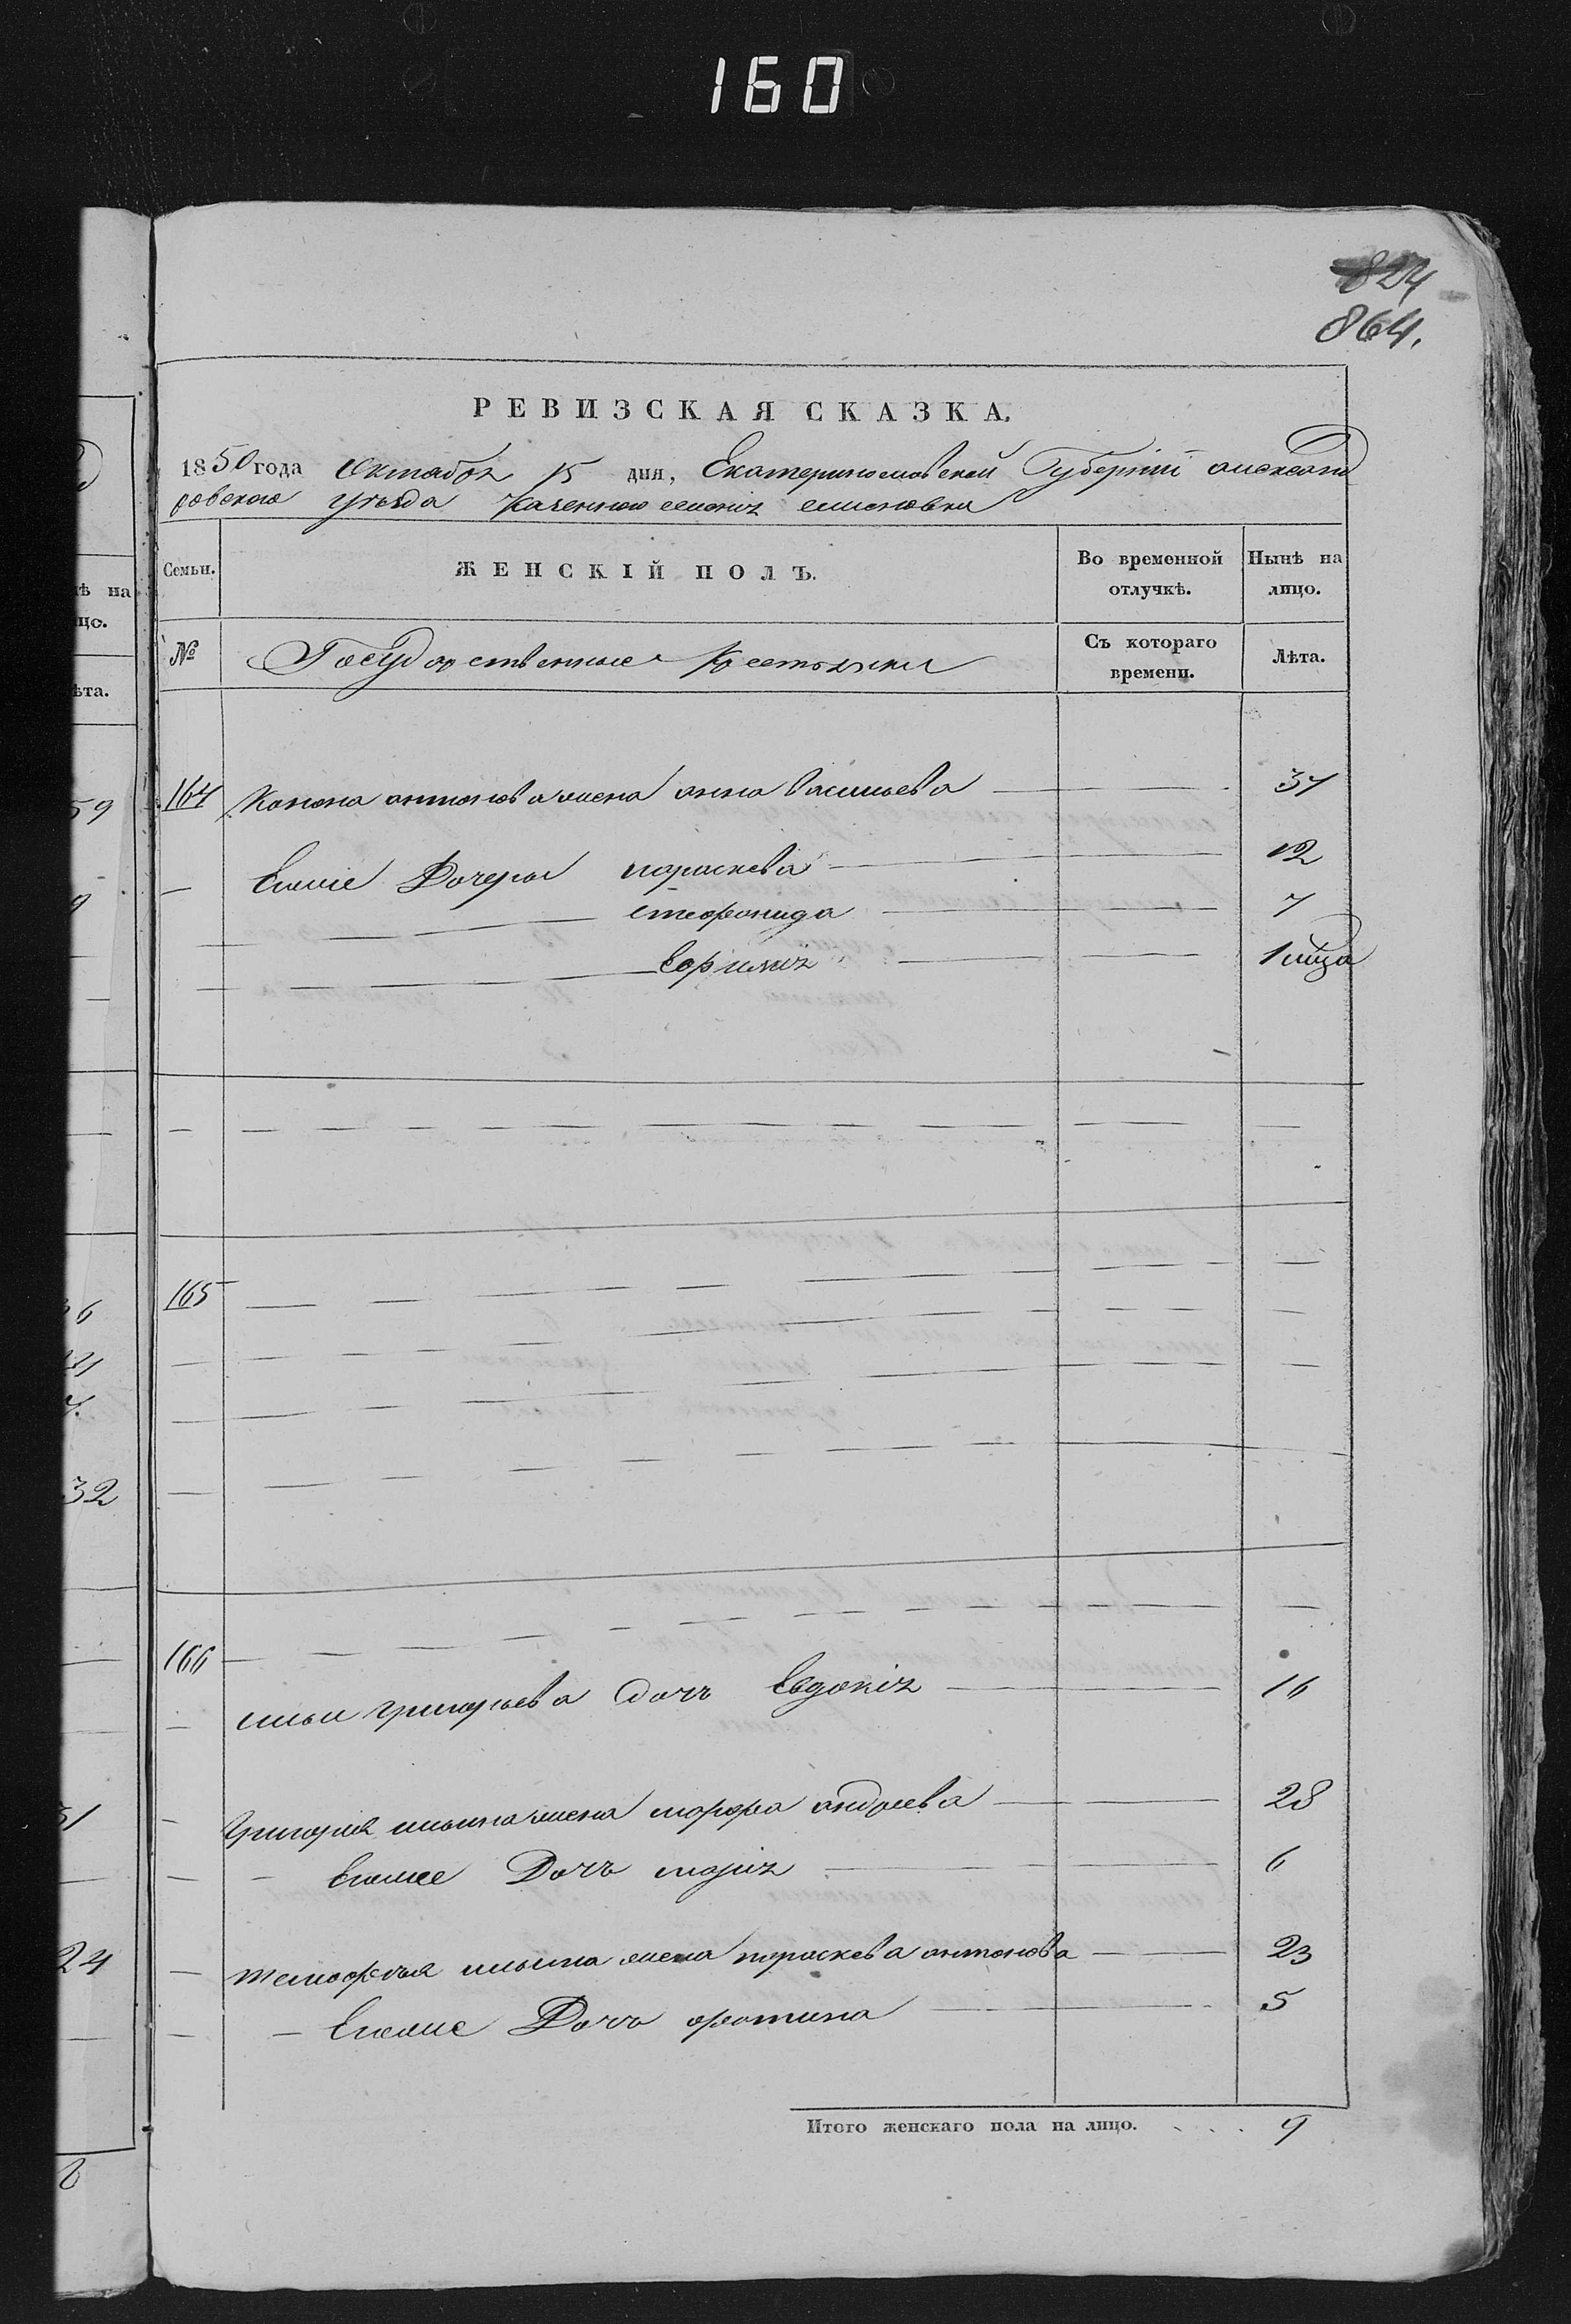 160
824
864.
РЕВИЗСКАЯ СКАЗКА.
1850 года Октября 15 дня, Екатеринославской Губерніи александ
ровского уезда Казенного селенія
Семьи. ЖЕНСКІЙ ПОЛЪ. Во временной отлучкѣ. Нынѣ на лицо.
№ Государственные Крестьянки Съ котораго времени. Лѣта.
164 Конона антонова жена анна васильева 37
Еиоше Дочери параскева 12
степонида 7
Ефимія 1 года
165
166
ильи григорьева дочь Евдокія 16
Григория ильина жена марфа андреева 28
Дочь марія 6
тимофѣя ильина жена параскева антонова 23
Дочь 5
Итого женскаго пола на лицо. 9
59
36
32
24
нѣ на
цо.
ѣта.